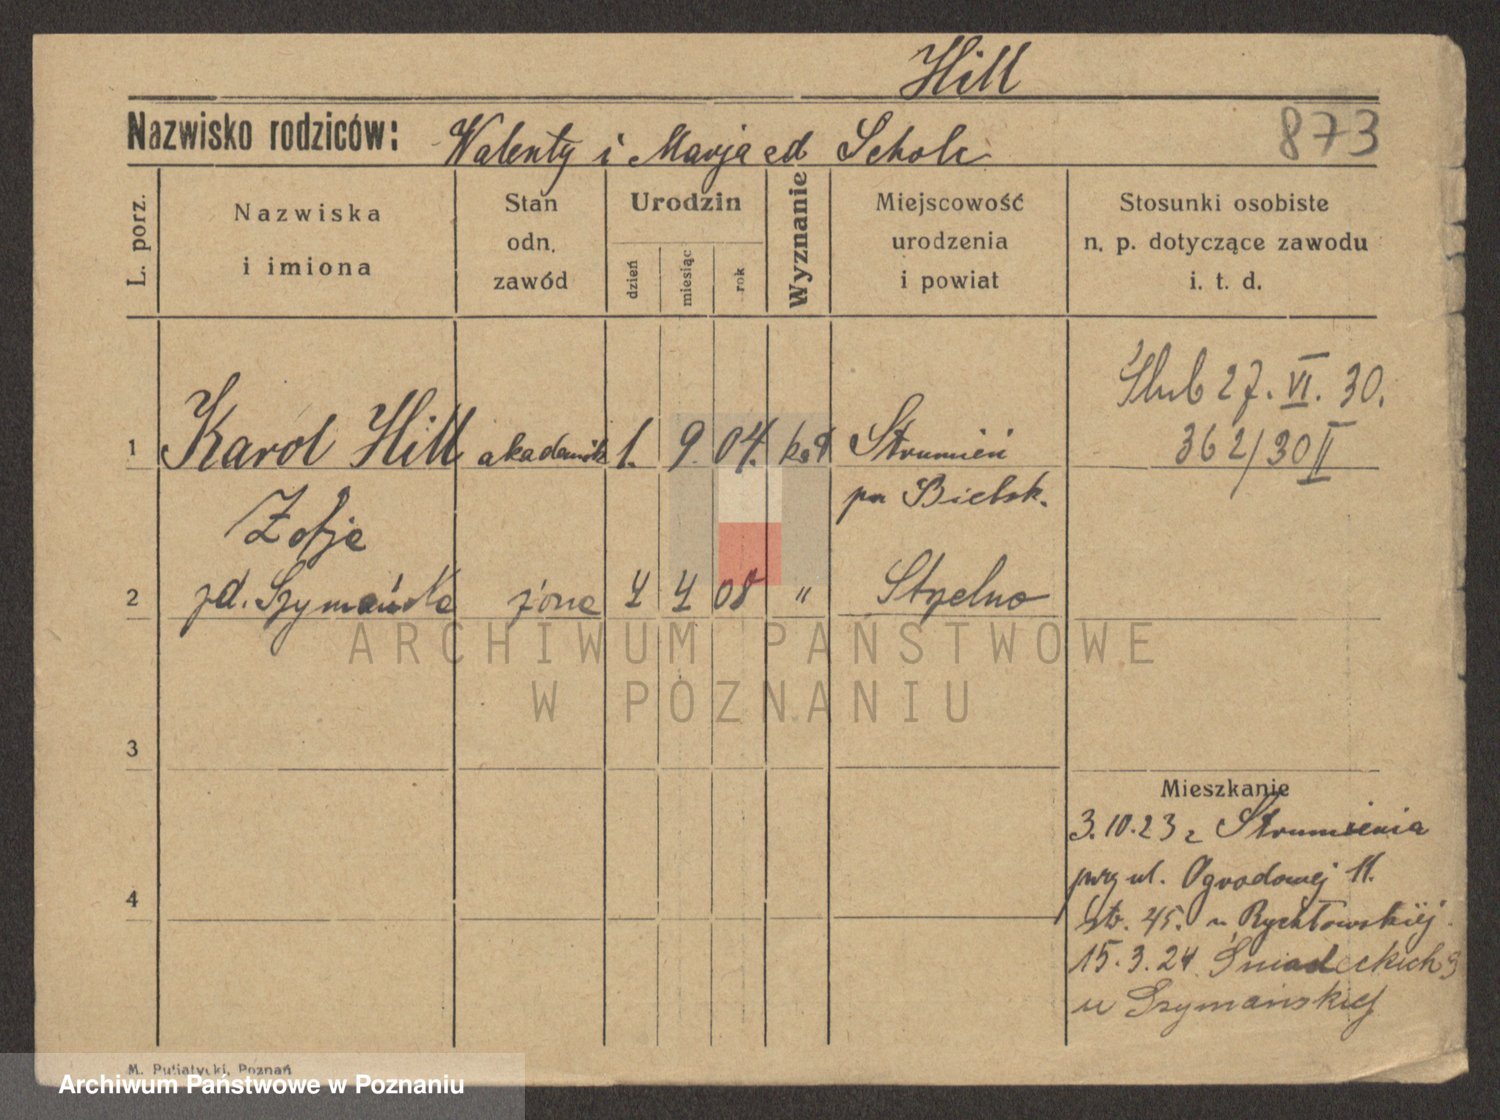 Hill
Nazwisko rodziców: Walenty i Marja zd Scholc
873
L. porz.
Nazwiska
i imiona
Stan
odn.
zawód
Urodzin
dzień
miesiąc
rok
Wyznanie
Miejscowość
urodzenia
i powiat
Stosunki osobiste
n. p. dotyczące zawodu
i. t. d.
Ślub 27. VI. 30.
362/30 II
1 Karol Hill akademik 1. 9. 04. kat Strumień
pow Bielsk.
Zofja
2 zd. Szymańska żona 4 4 08 " Strzelno
ARCHIWUM PAŃSTWOWE
W POZNANIU
3
4
Mieszkanie
3.10.23 z Strumienia
przy ul. Ogrodowej 11.
45. u Rychłowskiej
15.3.24 Śniadeckich
u Szymańskiej
M. Putiatycki, Poznań
Archiwum Państwowe w Poznaniu